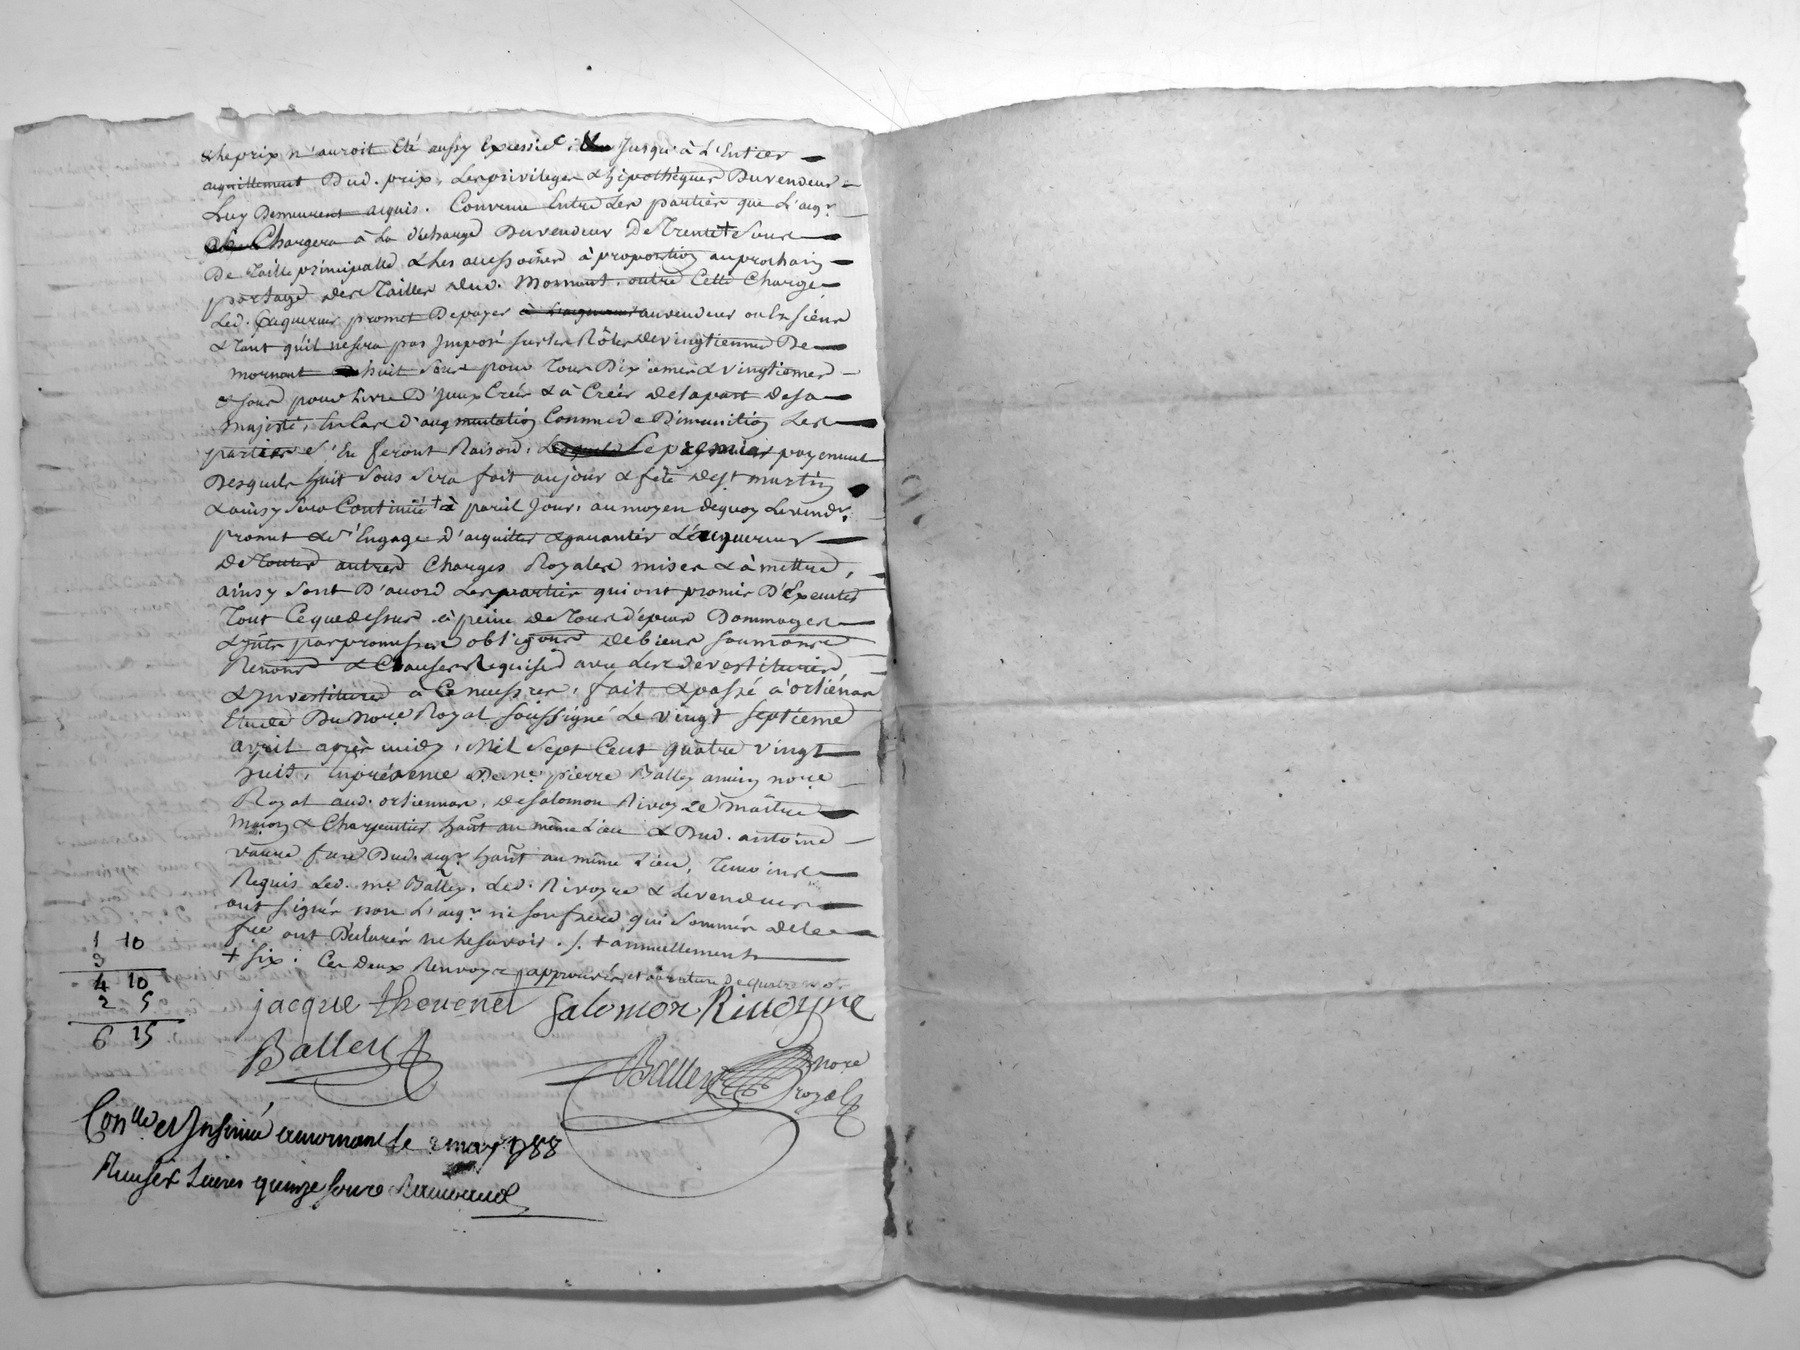 & le prix n'auroit été aussy Excessif, Jusqu'à L'Entier
aquillement Dud. prix, Les privileges & hipothèques Du vendeur
Luy Demeurent aquis. Convenu Entre Les parties que L'aqr.
Se Chargera à La décharge Du vendeur De Trente + Sous
De Taille principalle & Les accessoires à proportion au prochain
partage des Tailles dud. Mornant. outre Cette Charge
Led. aquereur promet De payer à L'aquereur au vendeur ou Es siens
& Tant qu'il ne sera pas Imposé sur les Rôles de vingtiemes De
mornant huit Sous pour Tous Dixiemes & vingtiemes
& sous pour Livre D'yceux Créés & à Créér de la part de sa
majesté, En Cas d'augmentation Comme de Diminution Les
parties s'En feront Raison, Le premier payement
Desquels huit Sous Sera fait au jour & fête de st martin
& ainsy Sera Continué + à pareil Jour, au moyen de quoy Le vendr.
promet & s'Engage d'aquitter & garantir L'aquereur
de Toutes autres Charges Royales mises & à mettre,
ainsy Sont D'acord Les parties qui ont promis D'Executer
Tout Ce que dessus à peine de Tous dépens Dommages
& jnts par promesses obligons de biens soumons
Renons & Clauses Requises avec Les devestitures
& Investitures à Ce necessres, fait & passé à ortiénas
Etude Du nore Royal soussigné Le vingt septieme
avril après midy, Mil Sept Cent quatre vingt
huit, En présence De me pierre Balley ancien nore
Royal aud. ortiennas, de Salomon Rivoyre maître
maçon & Charpentier hant au même Lieu & Dud. antoine
frere Dud. aqr. hant au même Lieu, Temoins
Requis Led. me Balley, Led. Rivoyre & Le vendeur
ont signés non L'aqr. ni son frere qui Sommés de le
fre ont Déclarés ne le savoir ./. + annuellement
+ six : Ces Deux Renvoys approuvés et La rature De quatre mots
1 10
3
4 10
2 5
6 15
jacque thevenet Salomon Rivoyre
Balley
Balley nore
royal
Conllé et Insinué a mornant le 2 may 1788
Reçu six Livres quinze sous